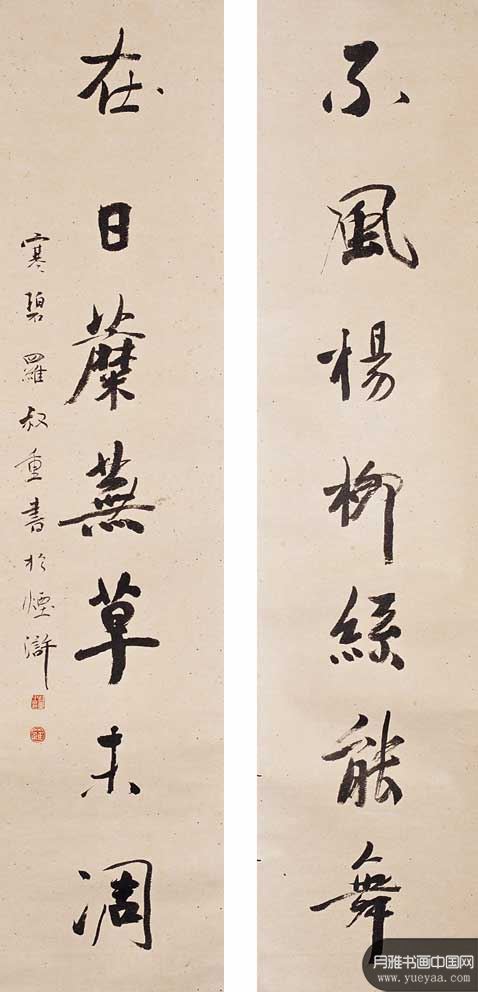 不風楊柳絲能舞
在日蘼蕪草未凋
寒碧羅叔重書於煙滸
月雅书画中国网
www.yueyaa.com